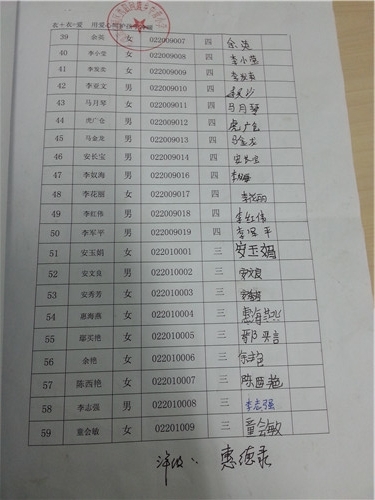 衣+衣=爱 用爱心
39 余英 女 022009007 四 余英
40 李小莹 女 022009008 四 李小莹
41 李发衣 女 022009009 四 李发衣
42 李亚文 男 022009010 四
43 马月琴 女 022009011 四 马月琴
44 虎广仓 男 022009012 四 虎广仓
45 马金龙 男 022009013 四 马金龙
46 安长宝 男 022009014 四 安长宝
47 李奴海 男 022009016 四 李奴海
48 李花丽 女 022009017 四 李花丽
49 李红伟 男 022009018 四 李红伟
50 李军平 男 022009019 四 李军平
51 安玉娟 女 022010001 三 安玉娟
52 安文良 男 022010002 三 安文良
53 安秀芳 女 022010003 三 安秀芳
54 惠海燕 女 022010004 三 惠海燕
55 鄢买艳 女 022010005 三
56 余艳 女 022010006 三 余艳
57 陈西艳 女 022010007 三 陈西艳
58 李志强 男 022010008 三 李志强
59 童会敏 女 02201009 三 童会敏
惠德录